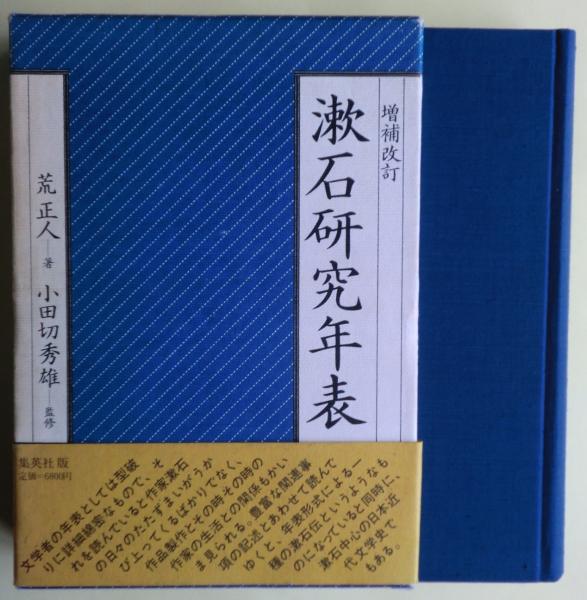 増補改訂
漱石研究年表
荒正人 著 小田切秀雄 監修
集英社版
定価=6800円
文学者の年表としては型破
りに詳細綿密なもので、そ
れを読んでいると作家漱石
の日々のたたずまいがうか
び上ってくるばかりでなく、
作品製作とその時その時の
作家の生活との関係もかい
ま見られる。豊富な関連事
項の記述とあわせて読んで
ゆくと、年表形式による一
種の漱石伝というようなも
のになっていると同時に、
漱石中心の日本近
代文学史で
もある。